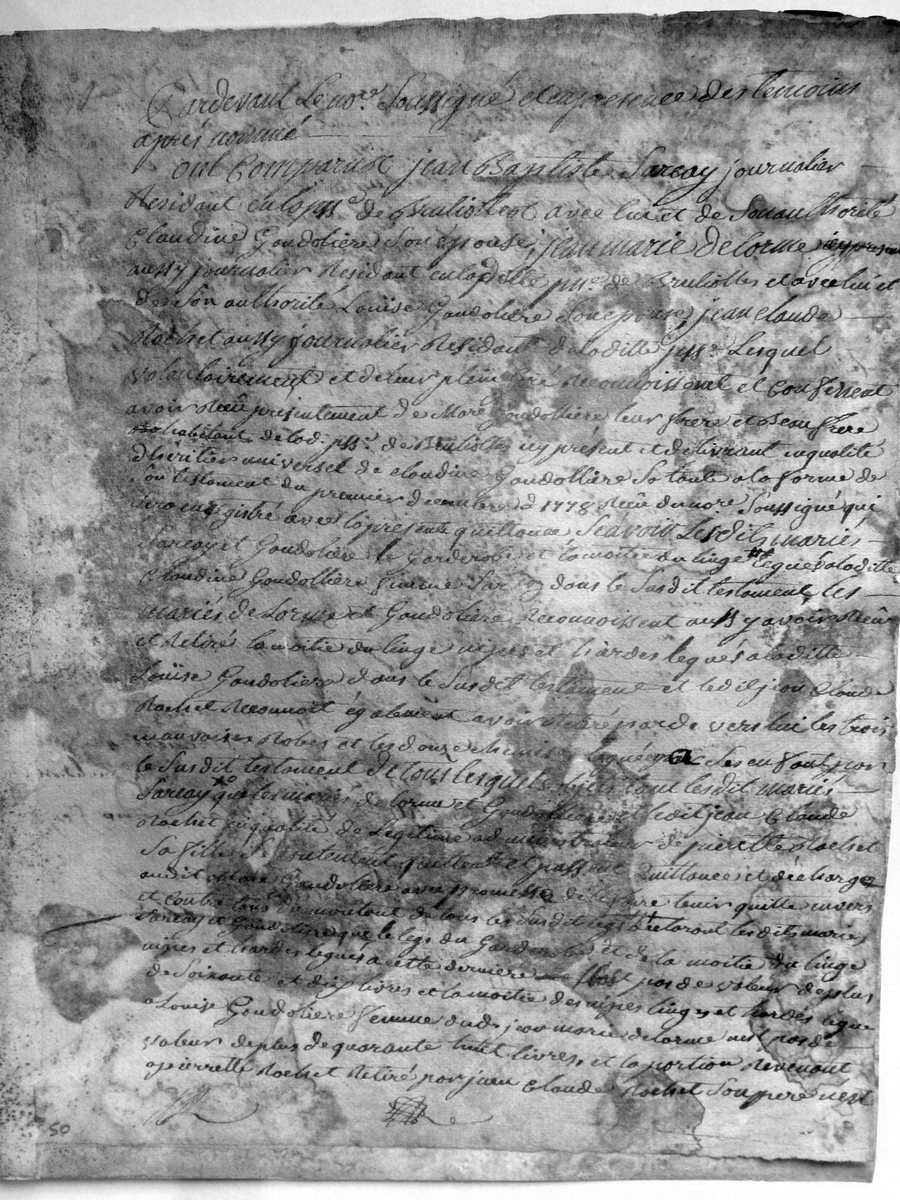 Pardevant Le no.re Soussigné et en presence des temoins
après nommé
ont Comparu jean Baptiste Sarcay journalier
Residant en la pss.e de Brulioles avec lui et de Son authorité
Claudine Gondoliere Son épouse, jean marie delorme
aussy journalier Residant en lad. pss.e de Brulioles et avec lui et
de Son authorité Loüise Gondoliere Son epouse, jean Claude
Rochet aussy journalier Residant de laditte pss.e Lesquel
volontairement et de leur plein gré Reconnoissent et Confessent
avoir Reçu présentement de More Gondolliere leur frere et Beaufrere
habitant de lad. pss.e de Brulioles icy present et delivrant en qualité
d'heritier universel de claudine Gondolliere Sa tante a la forme de
Son testament du premier decembre 1778 Reçu du no.re Soussigné qui
Sera enregistré avec la présente quittance Scavoir Lesdits mariés
Sarcay et Gondoliere le Garderobe et la moitié du linge legués a laditte
Claudine Gondolliere femme Sarcay dans le Susdit testament, les
mariés de Lorme et Gondoliere Reconnoissent aussy avoir Reçu
et Retiré la moitié du linge nipes et hardes legués a laditte
Loüise Gondoliere dans le Susdit testament et ledit jean Claude
Rochet Reconnoit également avoir Retiré par de vers lui les trois
mauvaises Robes et les douze chemises legués a Ses enfants par
le Susdit testament de tous lesquels objets tant lesdit mariés
Sarcay que les mariés delorme et Gondoliere et ledit jean Claude
Rochet en qualité de Legitime administrateur de pierrette Rochet
Sa fille Se contentent quittent et passent quittance et décharge
audit More Gondoliere avec promesse de l'en faire tenir quitte envers
et contre tous du montant de tous les Susdit legs declarant lesdits mariés
Sarcay et Gondoliere que le legs du Garderobe et de la moitié du linge
nipes et hardes legués a cette derniere n'est pas de valeur de plus
de Soixante et dix livres et la moitié des nipes linges et hardes legué
a Louise Gondoliere femme dud. jean marie delorme n'est pas de
valeur de plus de quarante huit livres et la portion Revenant
a pierrette Rochet Retiré par jean Claude Rochet Son pere n'est
50